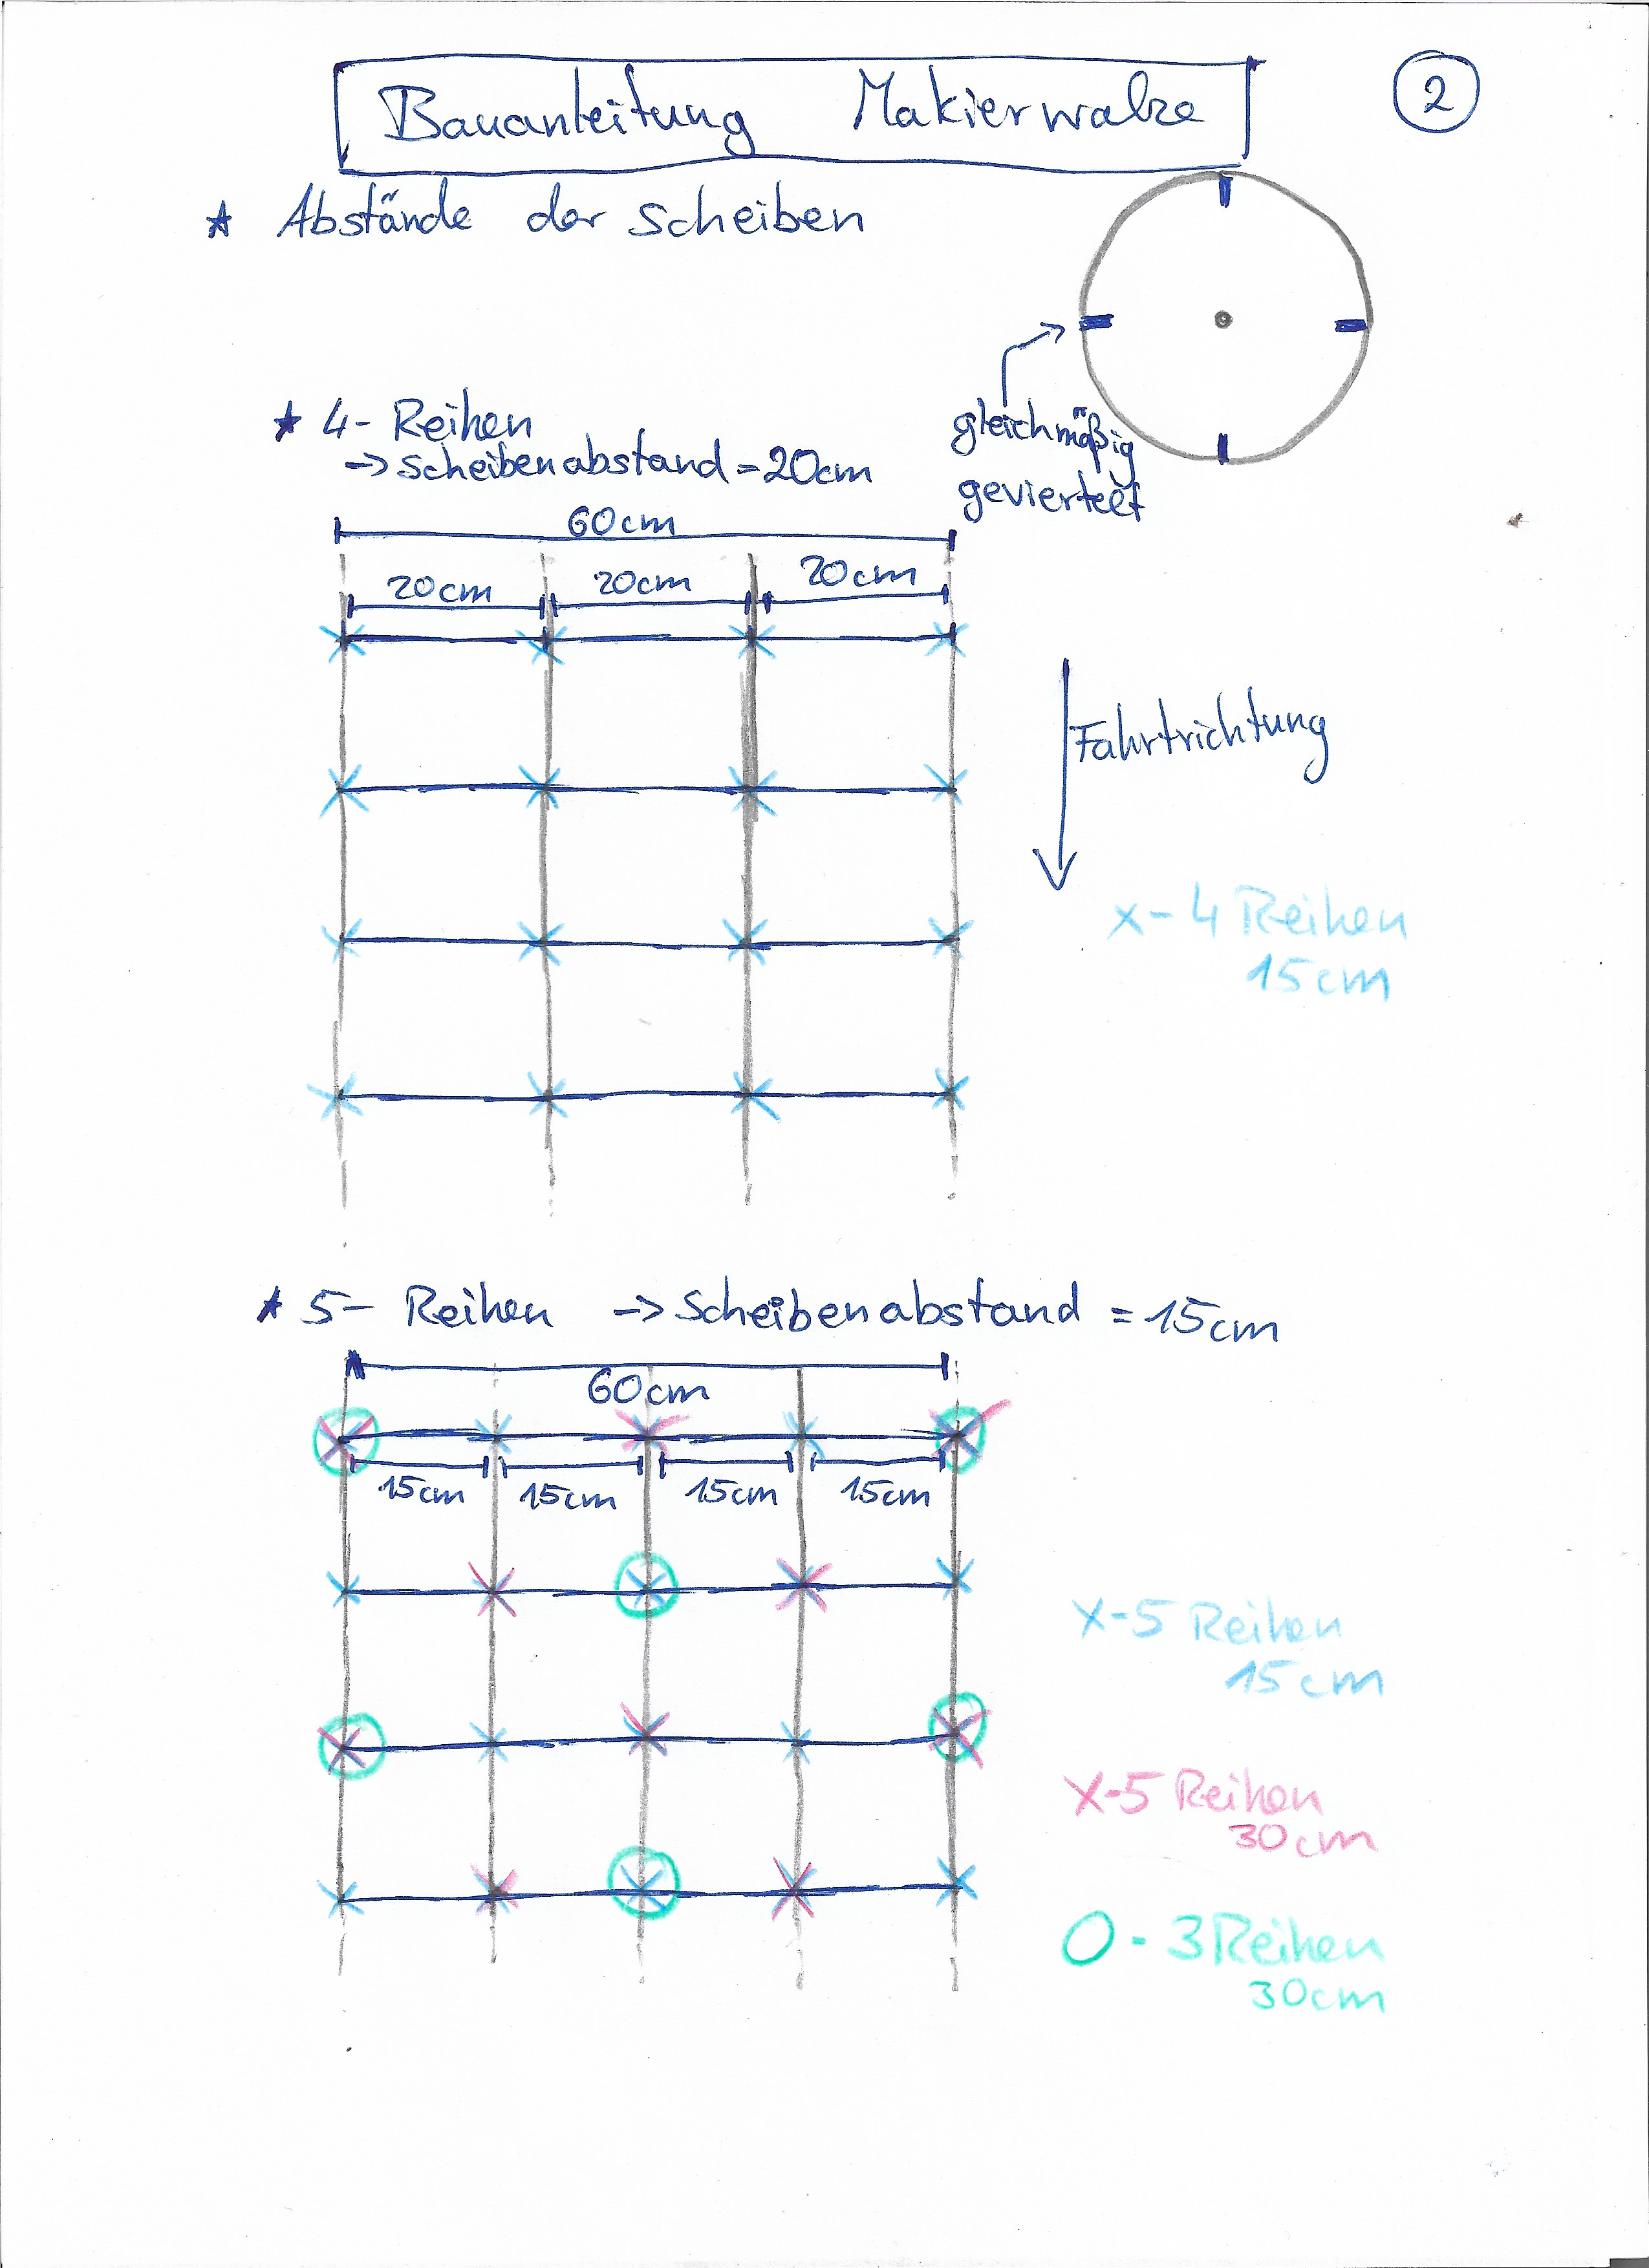 Bauanleitung Makierwalze
2
* Abstände der Scheiben
gleichmäßig
geviertelt
* 4- Reihen
-> Scheibenabstand = 20cm
60cm
20cm 20cm 20cm
Fahrtrichtung
x - 4 Reihen
15cm
* 5- Reihen -> Scheibenabstand = 15cm
60cm
15cm 15cm 15cm 15cm
X-5 Reihen
15cm
X-5 Reihen
30cm
O - 3 Reihen
30cm